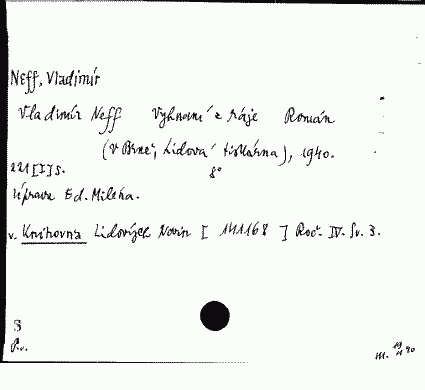 Neff, Vladimír
Vladimír Neff Vyhnaní z ráje Román
(v Brně, Lidová tiskárna), 1940.
221 [I] s. 8°
Úprava Ed. Miléna.
v. Knihovna Lidových Novin [ 141168 ] Roč. IV. Sv. 3.
S
P.v.
m. 19 40